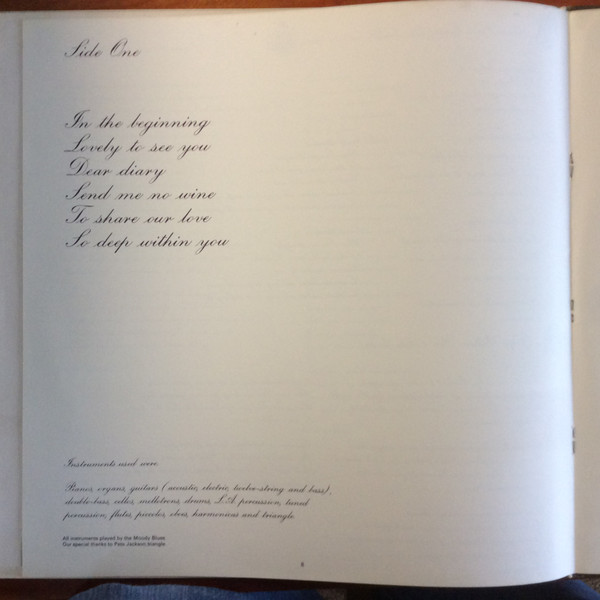 Side One
In the beginning
Lovely to see you
Dear diary
Send me no wine
To share our love
So deep within you
Instruments used were
Pianos, organs, guitars (acoustic, electric, twelve-string and bass),
double-bass, cellos, mellotrons, drums, L.A. percussion, tuned
percussion, flutes, piccolos, oboes, harmonicas and triangle.
All instruments played by the Moody Blues
Our special thanks to Pete Jackson, triangle